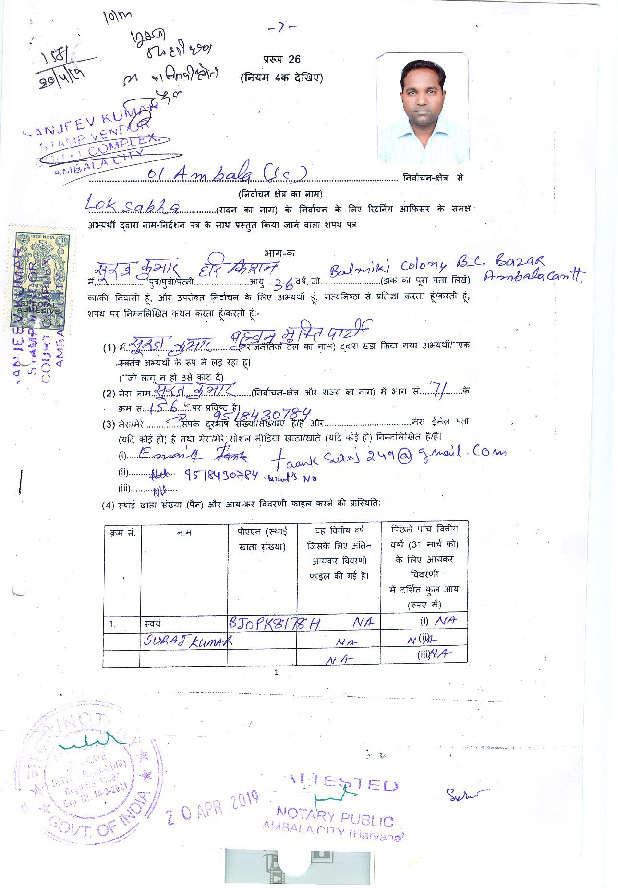 -7-
प्ररूप 26
(नियम 4क देखिए)
SANJEEV KUMAR
STAMP VENDOR
COURT COMPLEX
AMBALA CITY
01 Ambala (Sc) निर्वाचन-क्षेत्र से
(निर्वाचन क्षेत्र का नाम)
Lok Sabha (सदन का नाम) के निर्वाचन के लिए रिटर्निंग आफिसर के समक्ष
अभ्यर्थी द्वारा नाम-निर्देशन पत्र के साथ प्रस्तुत किया जाने वाला शपथ पत्र
भाग-क
मैं सूरज कुमार पुत्र/पुत्री/पत्नी हरि किशन आयु 36 वर्ष, जो Balmiki Colony B.C. Bazar Ambala Cantt. (डाक का पूरा पता लिखें)
का/की निवासी हूं, और उपरोक्त निर्वाचन के लिए अभ्यर्थी हूं, सत्यनिष्ठा से प्रतिज्ञा करता हूं/करती हूं,
शपथ पर निम्नलिखित कथन करता हूं/करती हूं:-
(1) मैं सूरज कुमार बहुजन मुक्ति पार्टी (राजनैतिक दल का नाम) द्वारा खड़ा किया गया अभ्यर्थी/ एक
स्वतंत्र अभ्यर्थी के रूप में लड़ रहा हूं।
(*जो लागू न हो उसे काट दें)
(2) मेरा नाम सूरज कुमार (निर्वाचन-क्षेत्र और राज्य का नाम) में भाग सं. 71 के
क्रम सं. 156 पर प्रविष्ट है।
(3) मेरा/मेरे संपर्क दूरभाष संख्या/संख्याएं है/हैं 9518430784 और मेरा ईमेल पता
(यदि कोई हो) है तथा मेरा/मेरे सोशल मीडिया खाता/खाते (यदि कोई हो) निम्नलिखित है/हैं।
(i) Email taank Suraj 249@gmail.Com
(ii) 9518430784 what's No
(iii) Nil
(4) स्थाई खाता संख्या (पैन) और आय-कर विवरणी फाइल करने की प्रास्थिति:
क्रम सं. नाम पीएएन (स्थाई खाता संख्या) वह वित्तीय वर्ष जिसके लिए अंतिम आयकर विवरणी फाइल की गई है। पिछले पांच वित्तीय वर्ष (31 मार्च को) के लिए आयकर विवरणी में दर्शित कुल आय (रुपए में)
1. स्वयं BJOPK8178H NA (i) NA
SURAJ KUMAR NA (ii) NA
NA (iii) NA
1
GOVT. OF INDIA
20 APR 2019
ATTESTED
NOTARY PUBLIC
AMBALA CITY (Haryana)